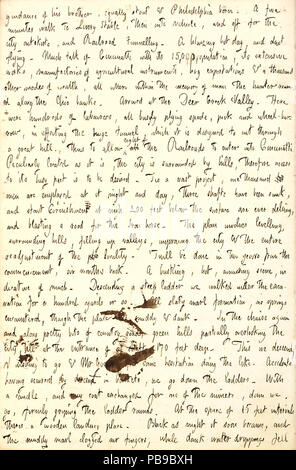 guidance of his brother, equally stout & Philadelphia born. A few
minutes walk to Livery Stable, then into vehicle, and off for the
city outskirts, and Railroad Tunnelling. A blazing hot day, and dust
flying. Much talk of Cincinnati with its 15,000 population, its extensive
works, manufactories of agricultural instruments, hog exportations & a thousand
other modes of wealth, all within the memory of man
along the Ohio banks. Arrived at the Deer Creek Valley. Here
were hundreds of laborers, all busily plying spade, pick and wheel-bar-
row, in effecting the huge tunnel, which it is designed to cut through
a great hill, thus to allow all the Railroads to enter into Cincinnati
Peculiarly located as it is, the city is surrounded by hills, therefore access
to its busy part is to be desired. Tis a vast project, one thousand
men are employed at it night and day, Three shafts have been sunk,
and stout Cornishmen at some 200 feet below the surface are ever delving,
and blasting a road for the Iron horse. The plan involves levelling
surrounding hills, filling up valleys, improving the city & the entire
readjustment of the locality. Twill be done in two years from the
commencement, six months back. A bustling, hot, sounding scene, in-
dicative of much. Descending a step ladder we walked under the exca-
vation for a hundred yards or so. slaty marl formation, no springs
encountered, though the place muddy & dank. In the chaise again
and along pretty bits of country, green hills partially overlooking the
city, till at the entrance of shaft 170 feet deep. This we descend-
ed having to go & Mr some hesitation doing the like. Accidents
having occurred by in buckets, we go down the ladders. With
candle, and coat exchanged for one of the miners, down we
go, firmly griping the ladder rounds. At the space of 15 feet intervals
theres a wooden landing place. Black as night it soon became, and
the muddy marl clogged our fingers, while dank water droppings fell
alamy
Image ID: PB9BXH
www.alamy.com